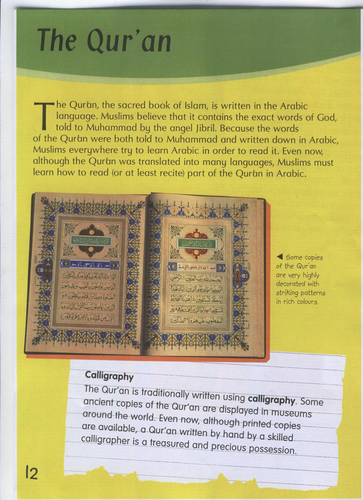 The Qur'an
The Qur'an, the sacred book of Islam, is written in the Arabic
language. Muslims believe that it contains the exact words of God,
told to Muhammad by the angel Jibril. Because the words
of the Qur'an were both told to Muhammad and written down in Arabic,
Muslims everywhere try to learn Arabic in order to read it. Even now,
although the Qur'an was translated into many languages, Muslims must
learn how to read (or at least recite) part of the Qur'an in Arabic.
◀ Some copies
of the Qur'an
are very highly
decorated with
striking patterns
in rich colours.
Calligraphy
The Qur'an is traditionally written using calligraphy. Some
ancient copies of the Qur'an are displayed in museums
around the world. Even now, although printed copies
are available, a Qur'an written by hand by a skilled
calligrapher is a treasured and precious possession.
12